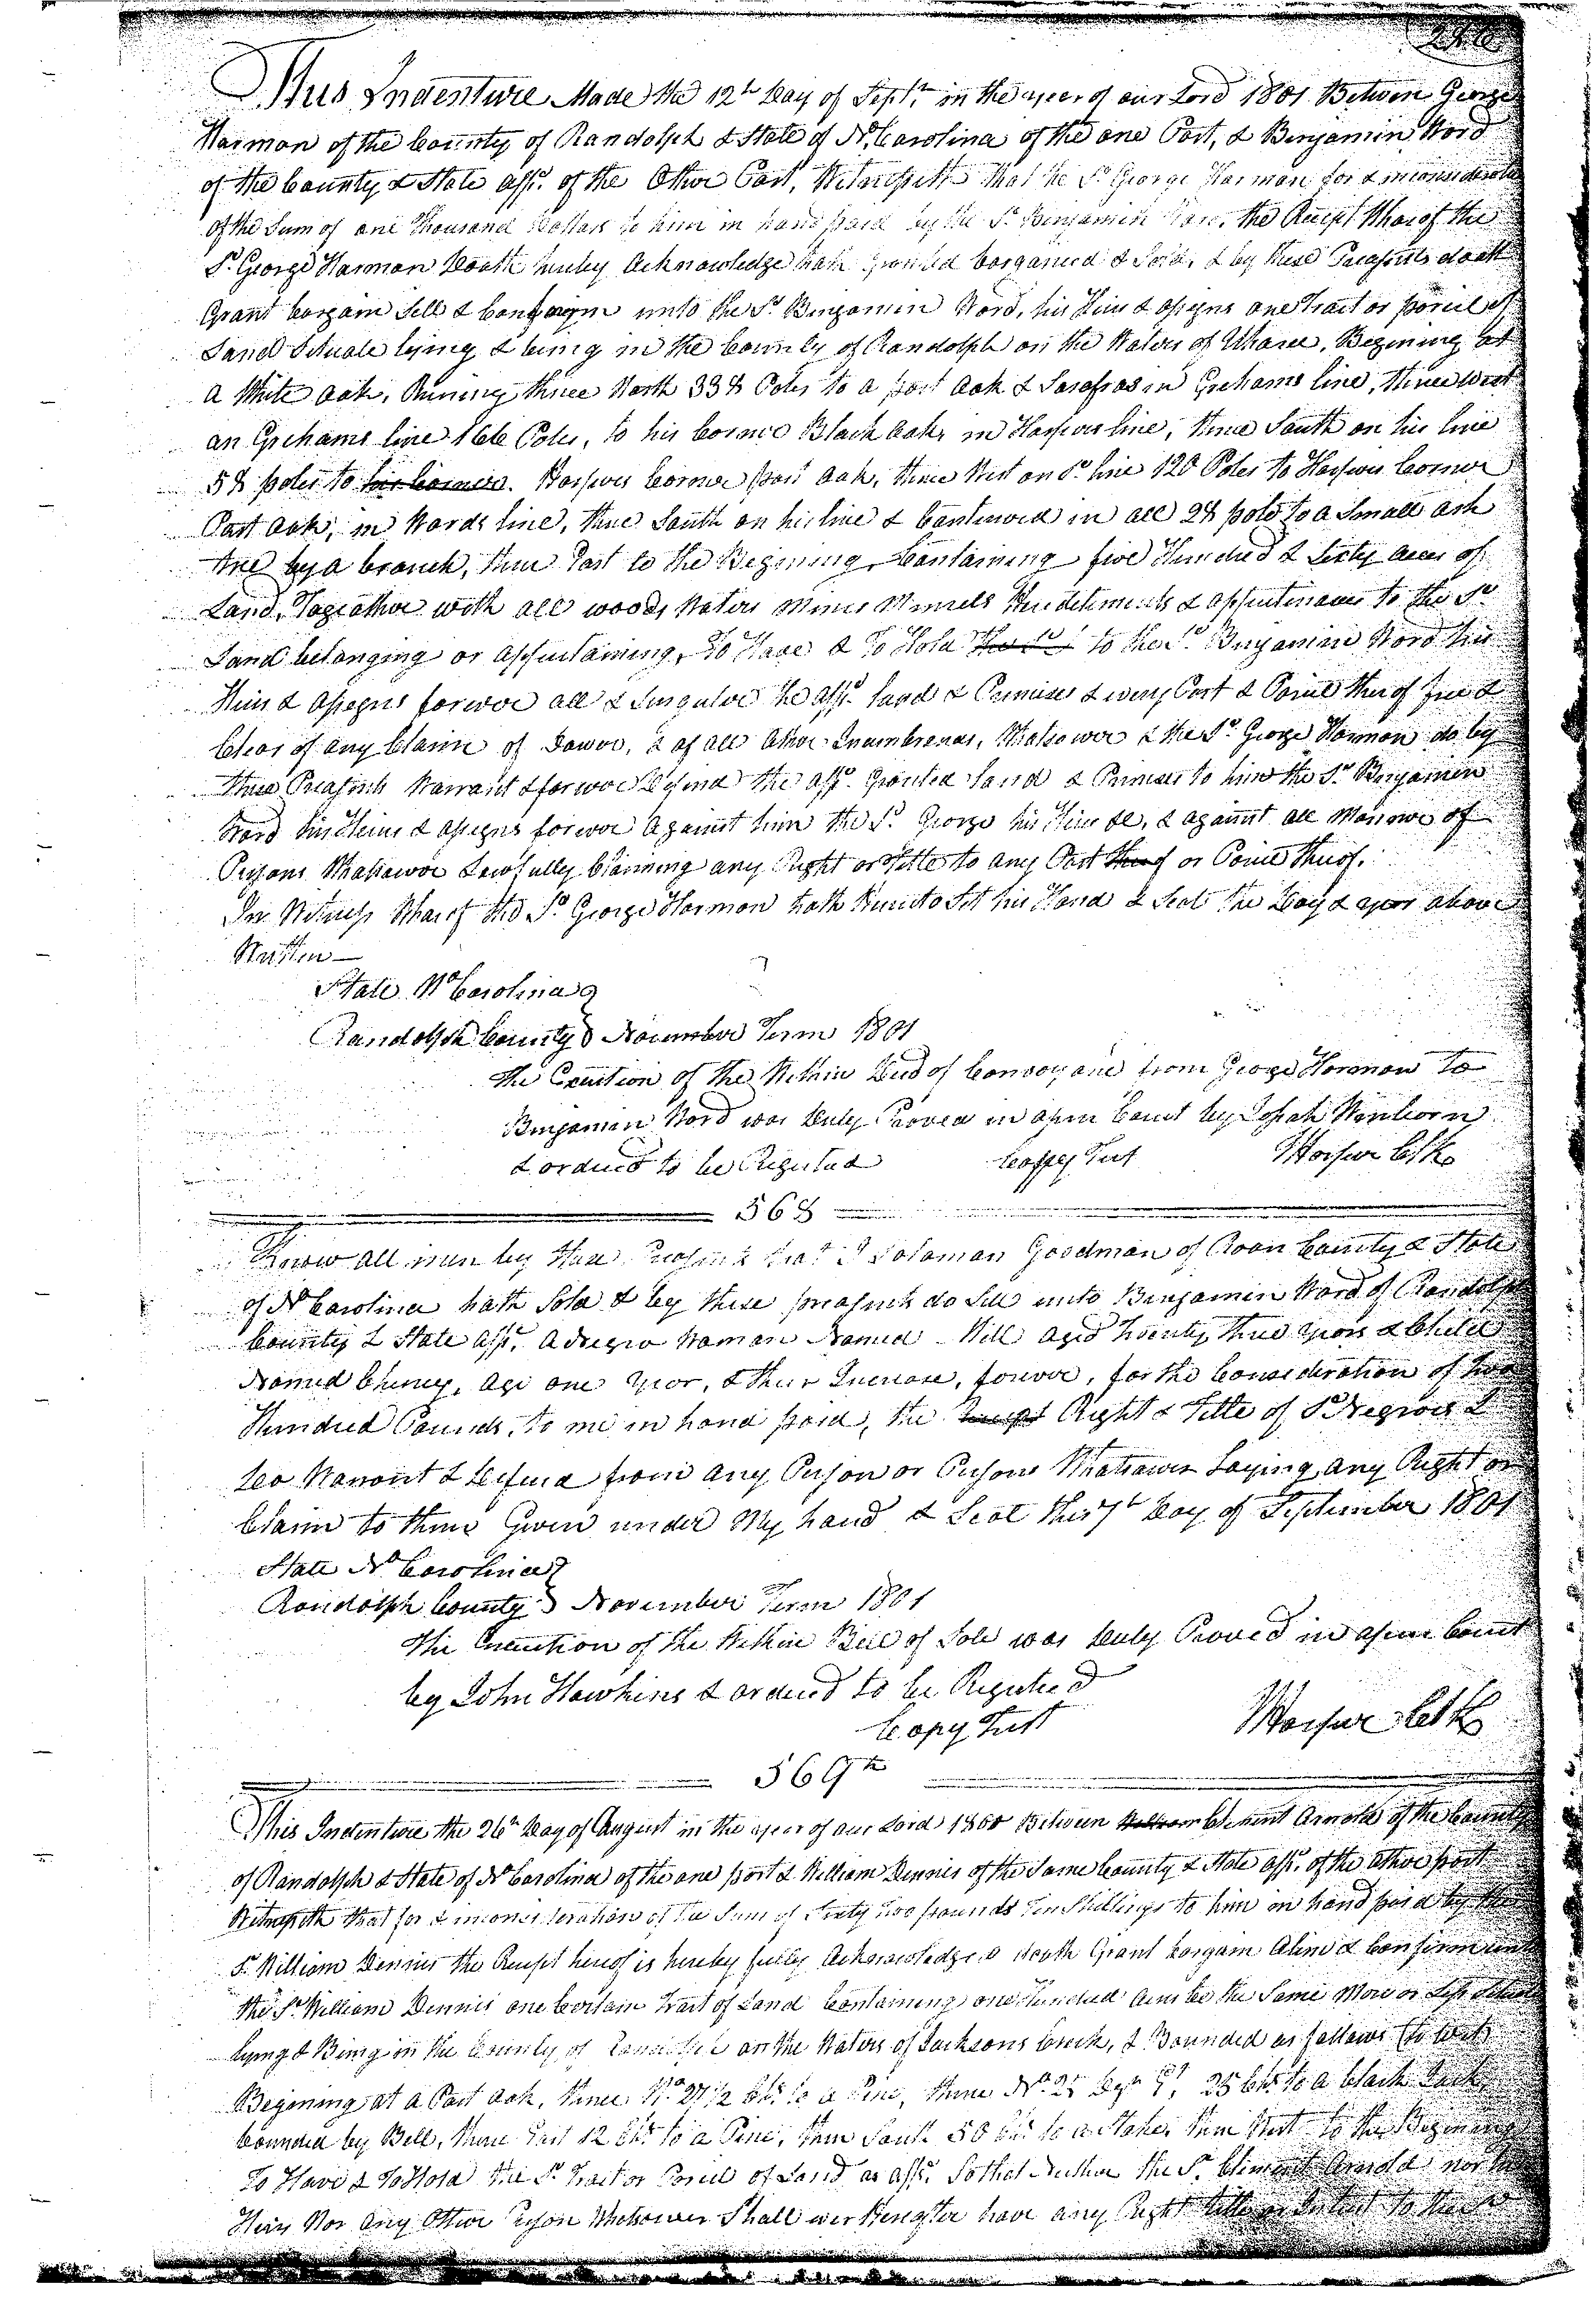 This Indenture Made the 12th Day of Septr. in the year of our Lord 1801 Betwen George
Harmon of the County of Randolph & State of No. Carolina of the one Part, & Benjamin Word
of the County & State affd. of the Other Part, Witnesseth that he Sd. George Harmon for & inconsideratn
of the Sum of one Thousand Dollars to him in hand paid by the Sd. Benjamin Word, the Receipt Wharof the
Sd. George Harmon Doath hereby Acknowledge hath granted bargained & Sold, & by these Preasents doath
Grant bargain Sell & Confirm unto the Sd. Benjamin Word, his Heirs & assigns one Tract or parcel of
Land Situate lying & being in the County of Randolph on the Waters of Uharee, Begining at
a White oak, Runing thence North 338 Poles to a post oak & Sasafras in Grehams line, thence West
on Grehams line 166 Poles, to his Corner Black oak, in Harpers line, thence South on his line
58 poles to his Corner. Harpers Corner post oak, thence West on Sd. line 120 Poles to Harpers Corner
Post oak, in Words line, thence South on his line & Continued in all 28 pole to a Small ash
tree by a branch, thence East to the Begining, Containing five Hundred & Sixty acres of
Land, Togeather with all woods Waters Mines Minrels Hereditements & appurtinances to the Sd.
Land belonging or appertaining, To Have & To Hold the Sd. to the Sd. Benjamin Word his
Heirs & assigns forever all & Singular the affd. land & Premises & every Part & Parcel thereof free &
Clear of any Claim of Dower, & of all other Incumbrances, Whatsoever & the Sd. George Harmon do by
these Preasents Warrant & forever Defend the affd. Granted land & Premises to him the Sd. Benjamin
Word his Heirs & assigns forever against him the Sd. George his Heirs &c, & against all Manner of
Persons Whatsoever Lawfully Claiming any Right or Title to any Part thereof or Parcel thereof.
In Witness Wharof the Sd. George Harmon hath hereunto Set his Hand & Seal the Day & year above
Written—
State No. Carolina
Randolph County November Term 1801
the Execution of the Within Deed of Conveyance from George Harmon to
Benjamin Word was Duly Proved in open Court by Josiah
& ordered to be Registed Coppy Test Harper Clk
568
Know all men by these Preasents that I Soloman Goodman of Roan County & State
of No Carolina hath Sold & by these preasents do Sell unto Benjamin Word of Randolph
County & State affd. a Negro Woman Named Mill aged twenty three years & Child
Named Chiney, age one year, & their Increase, forever, for the Consideration of two
Hundred Pounds, to me in hand paid, the Receipt Right & Title of Sd Negroes I
do Warrant & Defend from any Person or Persons Whatsoever Laying any Right or
Claim to them Given under My hand & Seal this 7th Day of September 1801
State No Carolina
Randolph County November Term 1801
The Execution of the Within Bill of Sale was Duly Proved in open Court
by John Hawkins & ordered to be Registed
Copy Test Harper Clk
569th
This Indenture the 26th Day of August in the year of our Lord 1800 Between Clement Arnold of the County
of Randolph & State of No Carolina of the one part & William Dennis of the Same County & State affd. of the other part
Witnesseth that for & inconsideration of the Sum of Sixty two pounds Ten Shillings to him in hand paid by the
Sd. William Dennis the Receipt hereof is hereby fully Acknowledged doath Grant bargain Alien & Confirm unto
the Sd. William Dennis one Certain Tract of Land Containing one Hundred acres be the Same More or Less
lying & Being in the County of Randolph on the Waters of Jacksons Creek, & Bounded as follows (to wit)
Begining at a Post oak, thence No. 27 1/2 Chs. to a Pine, thence No. 25 Chs to a black Jack
bounded by Bell, thence East 12 Chs to a Pine, then South 50 Chs to a Stake, then West to the Begining
To Have & To Hold the Sd. Tract or Parcel of Land as affd. So that Neither the Sd. Clement Arnold nor his
Heirs Nor any Other Person Whatsoever Shall ever Hereafter have any Right title or Intrest to the Sd